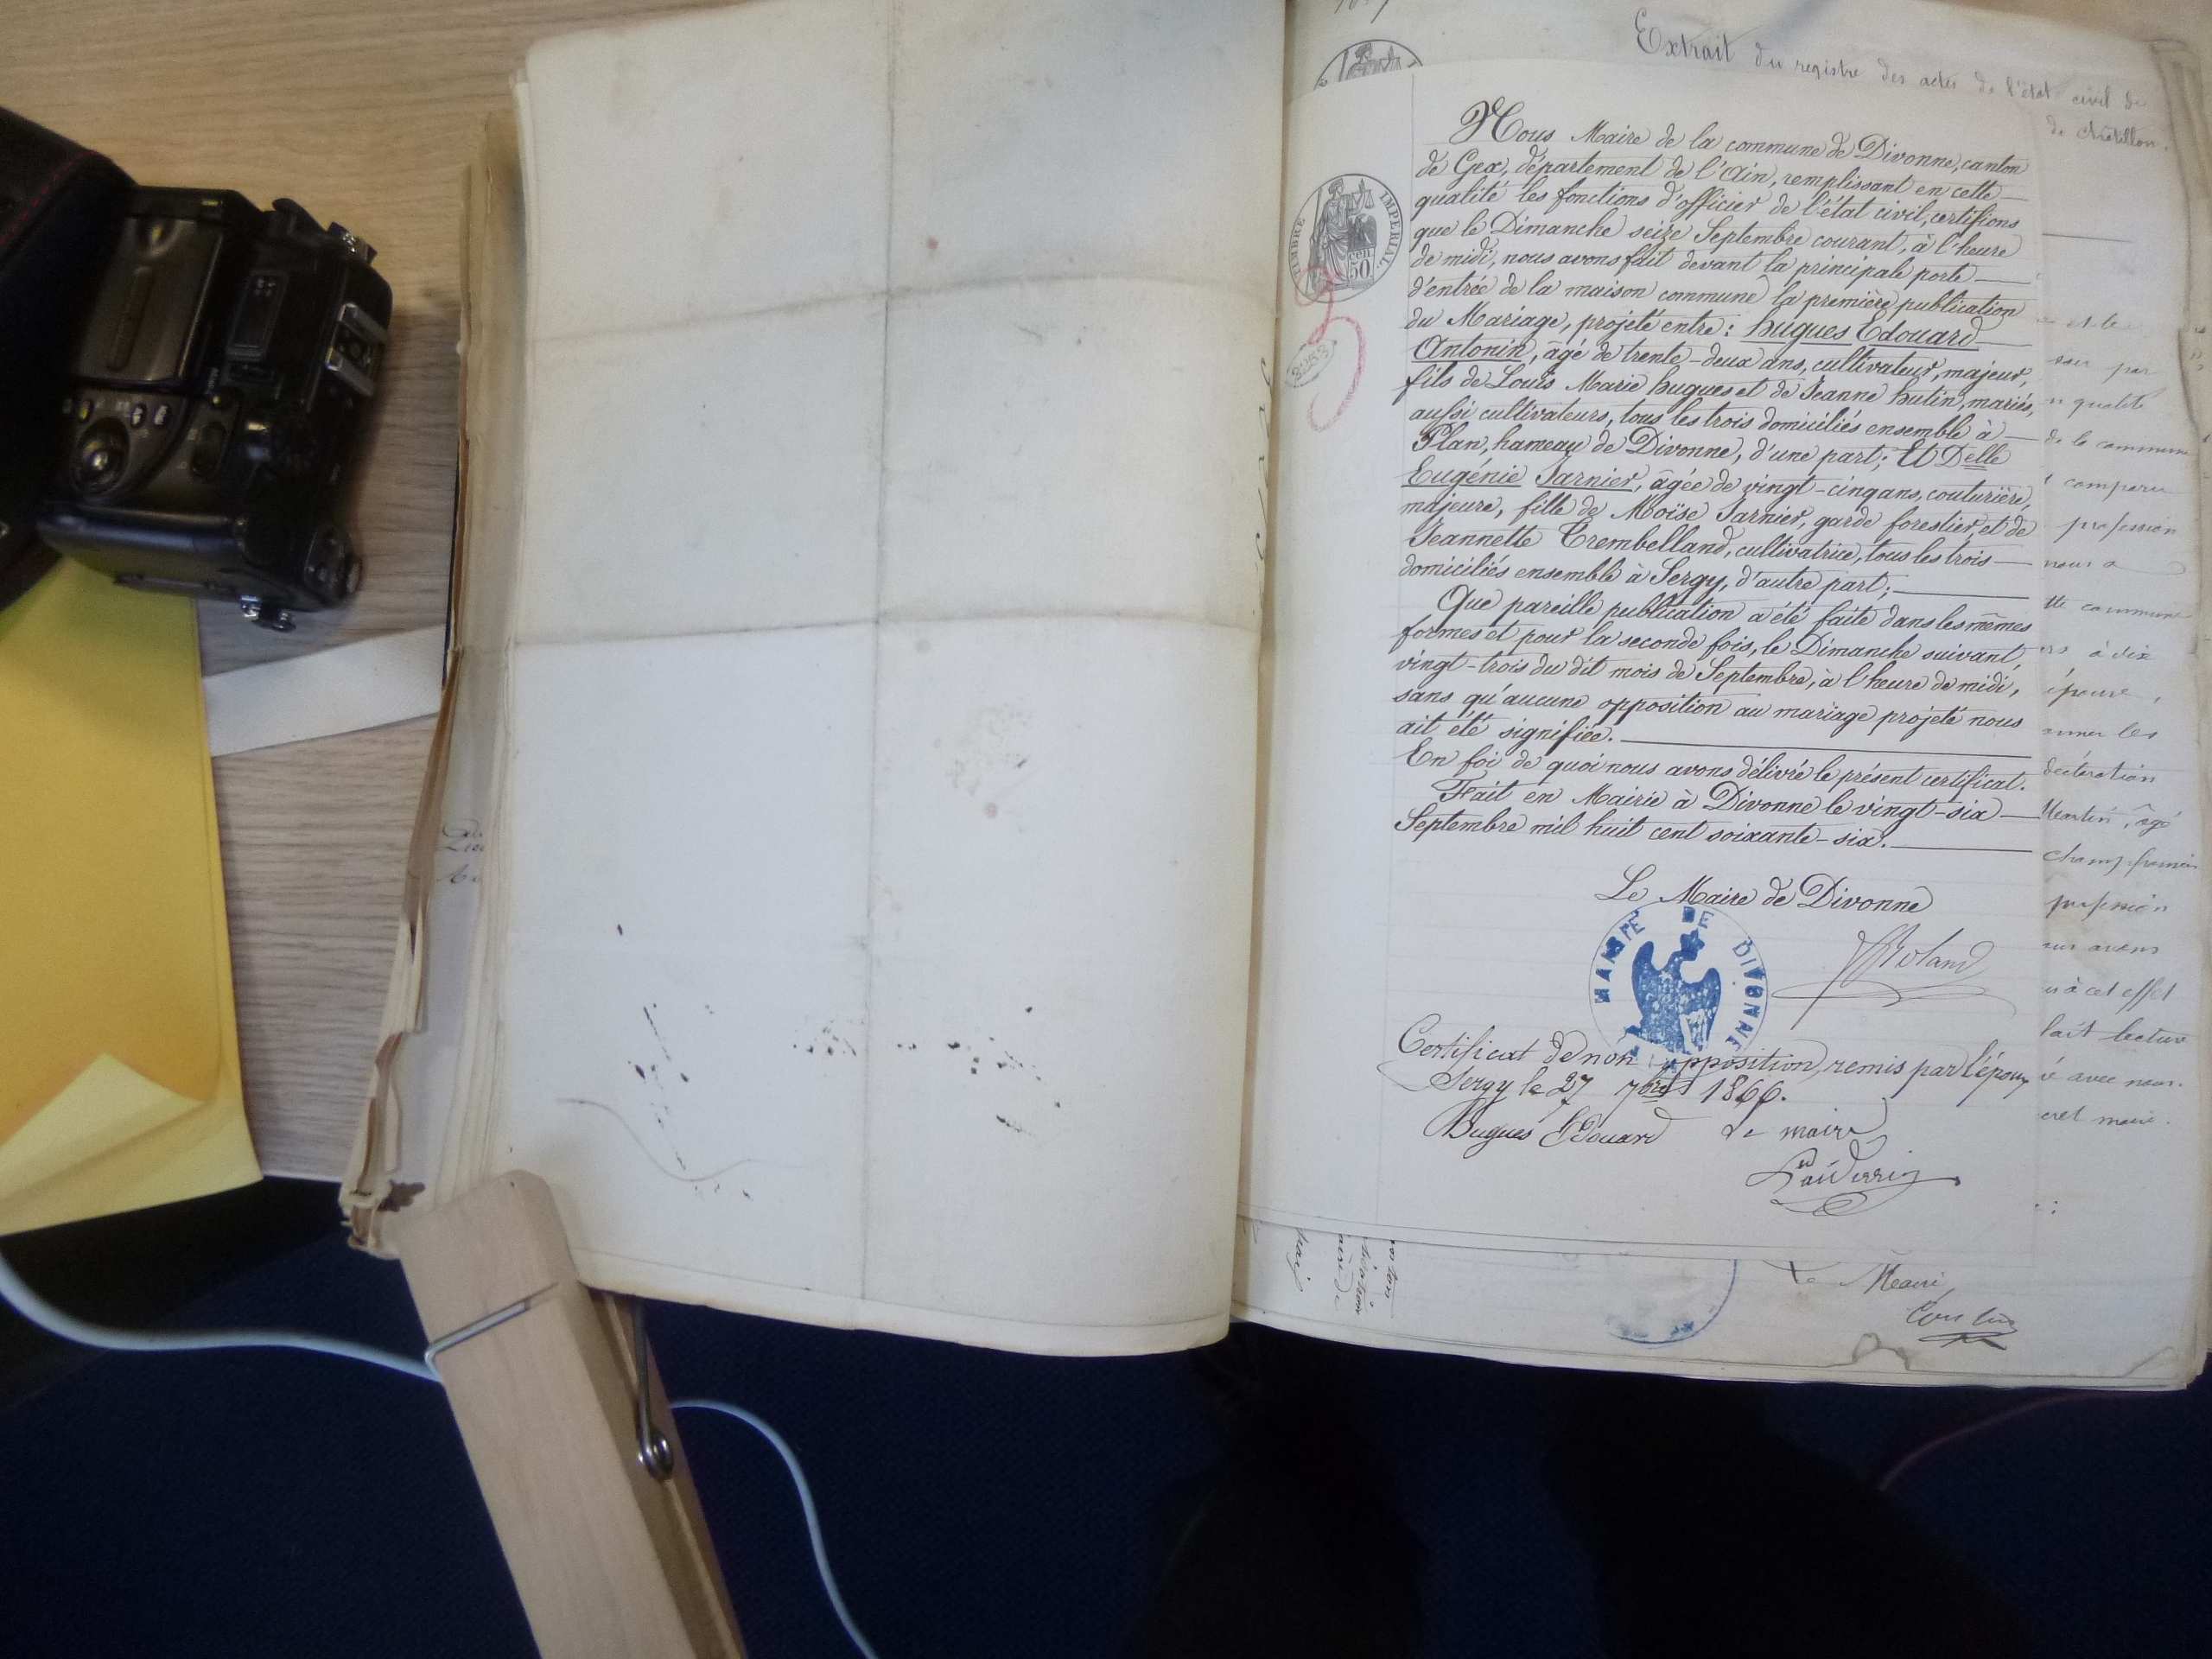 Extrait du registre des actes de l'état civil de
de Châtillon.
Nous Maire de la commune de Divonne, canton
de Gex, département de l'Ain, remplissant en cette
qualité les fonctions d'officier de l'état civil, certifions
que le Dimanche seize Septembre courant, à l'heure
de midi, nous avons fait devant la principale porte
d'entrée de la maison commune la première publication
du Mariage, projeté entre : hugues Edouard
Antonin, âgé de trente-deux ans, cultivateur, majeur,
fils de Louis Marie hugues et de Jeanne hutin, mariés,
aussi cultivateurs, tous les trois domiciliés ensemble à
Plan, hameau de Divonne, d'une part; Et Delle
Eugénie Jarnier, âgée de vingt-cinq ans, couturière,
majeure, fille de Moïse Jarnier, garde forestier, et de
Jeannette Trembelland, cultivatrice, tous les trois
domiciliés ensemble à Sergy, d'autre part;
Que pareille publication a été faite dans les mêmes
formes et pour la seconde fois, le Dimanche suivant,
vingt-trois du dit mois de Septembre, à l'heure de midi,
sans qu'aucune opposition au mariage projeté nous
ait été signifiée.
En foi de quoi nous avons délivré le présent certificat.
Fait en Mairie à Divonne le vingt-six
Septembre mil huit cent soixante-six.
Le Maire de Divonne
Roland
MAIRIE DE DIVONNE
Certificat de non opposition remis par l'époux
Sergy le 27 7bre 1866.
Hugues Edouard Le maire
TIMBRE IMPERIAL
50 cen
et le
par
qualité
de la commune
comparu
profession
nous a
tte commune
à dix
épouse,
les
déclaration
âgé
profession
avons
à cet effet
fait lecture
é avec nous.
maire.
Le Maire